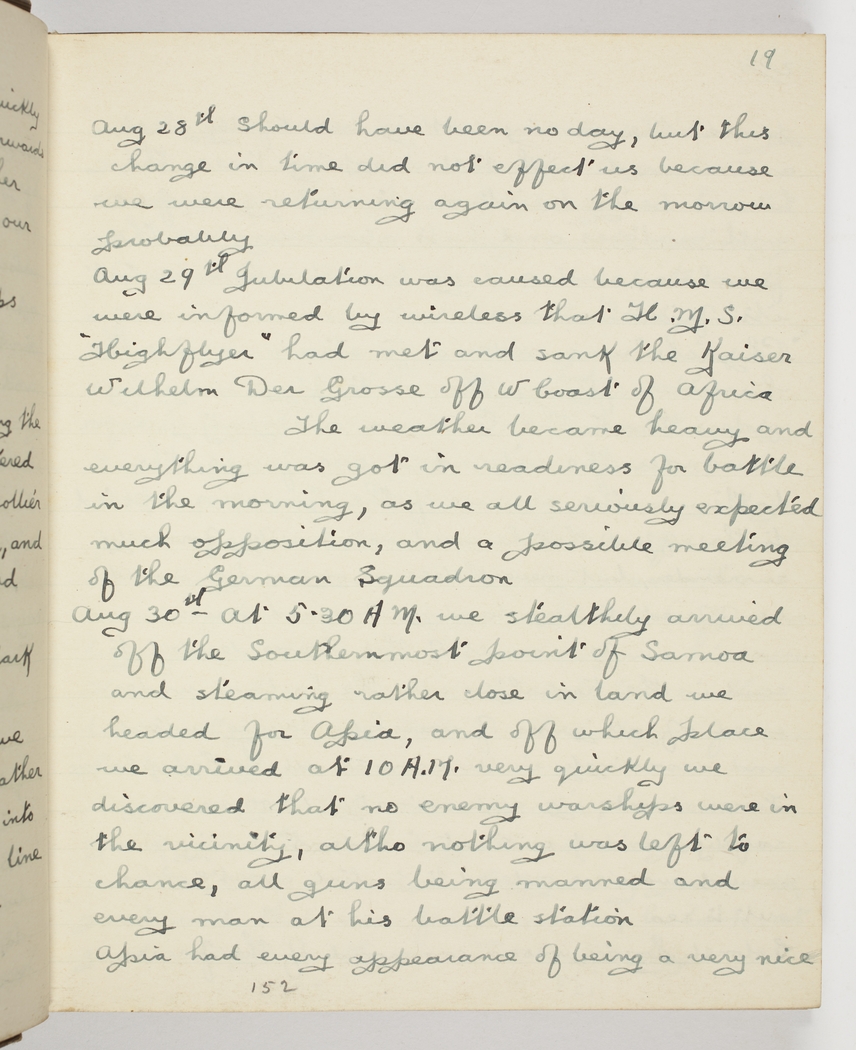 19
Aug 28th Should have been no day, but this
change in time did not effect us because
we were returning again on the morrow
probably
Aug 29th Jubilation was caused because we
were informed by wireless that H.M.S.
"Highflyer" had met and sank the Kaiser
Wilhelm Der Grosse off W Coast of Africa
The weather became heavy and
everything was got in readiness for battle
in the morning, as we all seriously expected
much opposition, and a possible meeting
of the German Squadron
Aug 30th At 5.30 A M. we stealthily arrived
off the Southernmost point of Samoa
and steaming rather close in land we
headed for Apia, and off which place
we arrived at 10 A.M. very quickly we
discovered that no enemy warships were in
the vicinity, altho nothing was left to
chance, all guns being manned and
every man at his battle station
Apia had every appearance of being a very nice
152
uickly
rwards
her
our
ng the
ered
ollier
, and
ark
we
ather
into
line